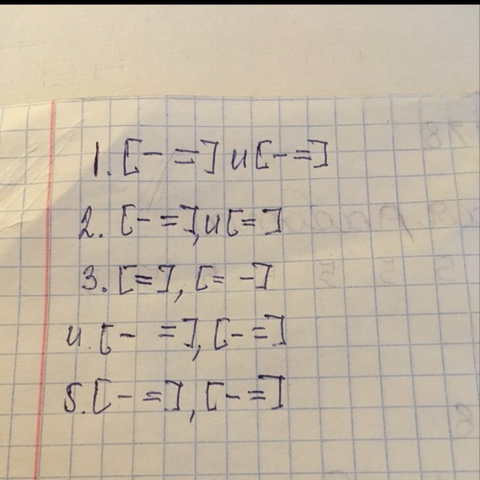 1. [- =] и [- =]
2. [- =], и [=]
3. [=], [= -]
4. [- =], [- =]
5. [- =], [- =]